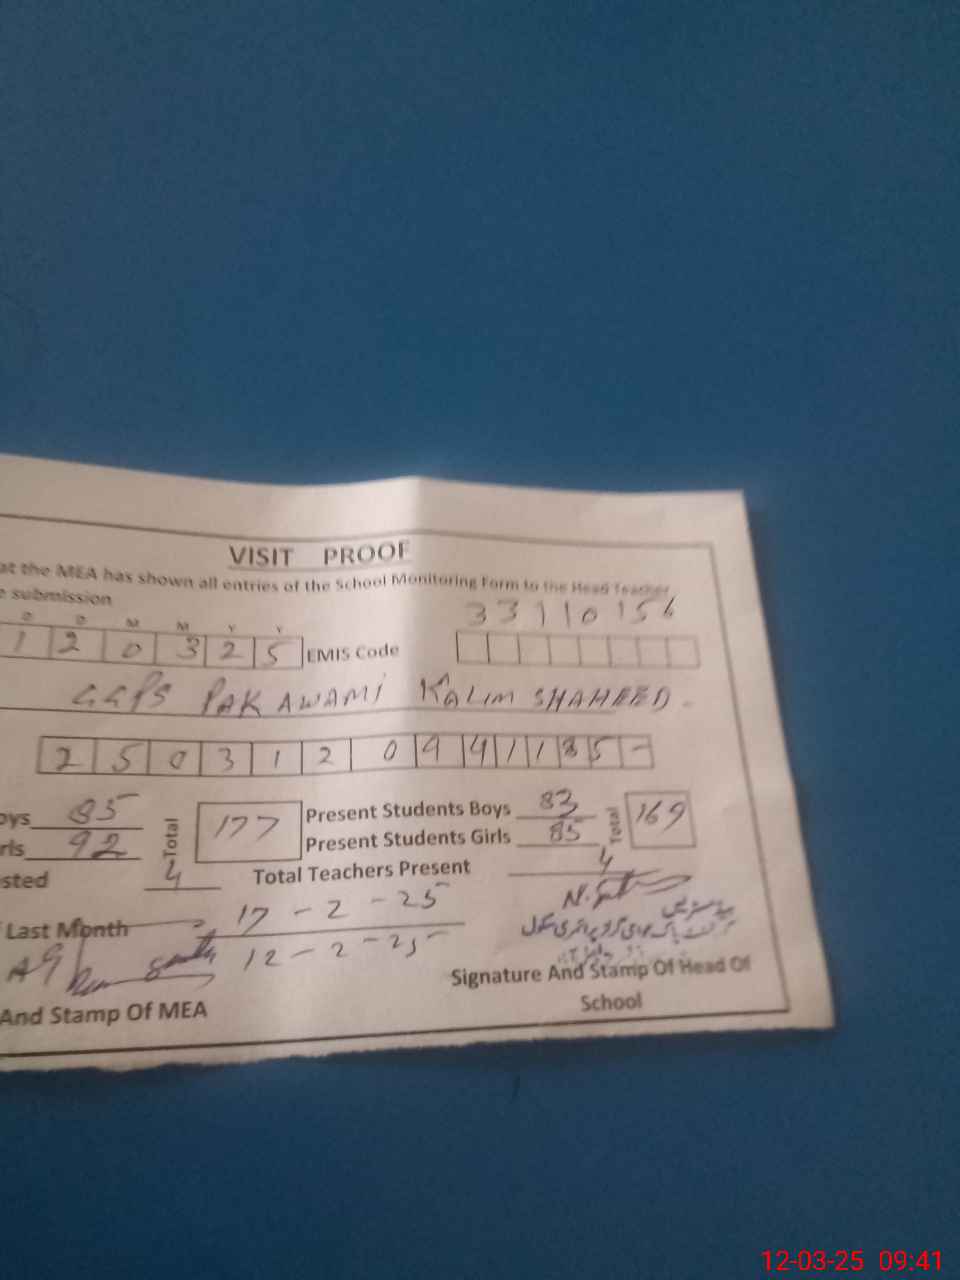 VISIT PROOF
at the MEA has shown all entries of the School Monitoring Form to the Head Teacher
e submission
33110156
D D M M Y Y
1 2 0 3 2 5 EMIS Code
GGPS PAK AWAMI KALIM SHAHEED
2 5 0 3 1 2 0 9 4 1 1 8 5 -
oys 85 Total 177 Present Students Boys 83 Total 169
rls 92 Present Students Girls 85
sted 4 Total Teachers Present 4
Last Month 17-2-25
12-2-25
Signature And Stamp Of Head Of
School
And Stamp Of MEA
12-03-25 09:41